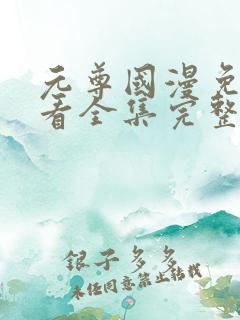 元尊國漫免
看全集完整
銀子多多
未经同意禁止转载